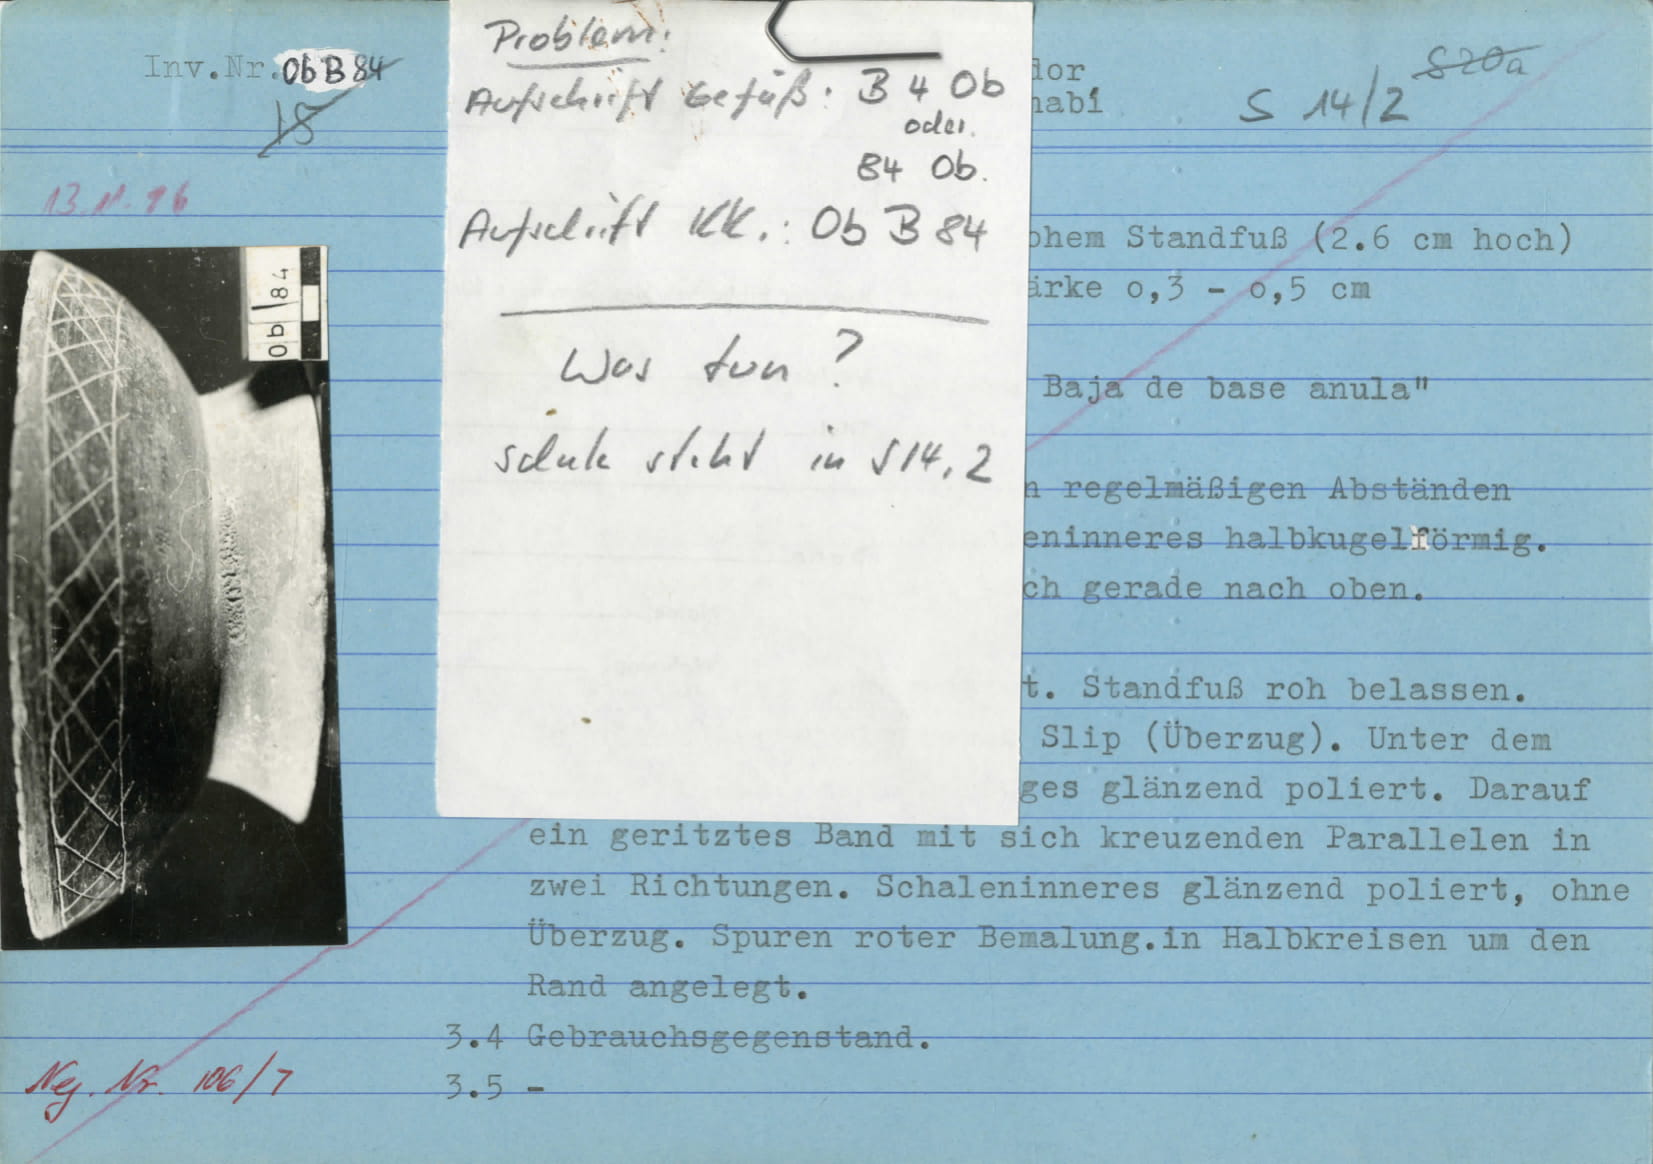 Inv.Nr. Ob B 84
18
dor
habí
S 20a
S 14/2
13.11.76
Ob 84
Problem:
Aufschrift Gefäß: B 4 Ob
oder
B4 Ob.
Aufschrift KK.: Ob B 84
Was tun?
Schale steht in S14,2
ohem Standfuß (2.6 cm hoch)
ärke o,3 - o,5 cm
Baja de base anula"
n regelmäßigen Abständen
eninneres halbkugelförmig.
ch gerade nach oben.
t. Standfuß roh belassen.
Slip (Überzug). Unter dem
ges glänzend poliert. Darauf
ein geritztes Band mit sich kreuzenden Parallelen in
zwei Richtungen. Schaleninneres glänzend poliert, ohne
Überzug. Spuren roter Bemalung.in Halbkreisen um den
Rand angelegt.
3.4 Gebrauchsgegenstand.
3.5 -
Neg. Nr. 106/7